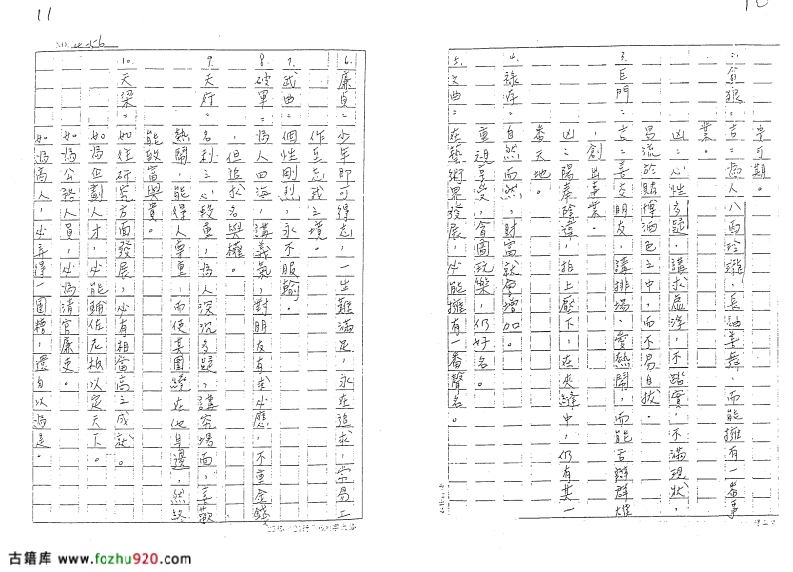 早可期。
2.貪狼：吉：為人八面玲瓏，長袖善舞，而能擁有一番事
業。
凶：心性多疑，講求虛浮，不踏實，不滿現狀，
易流於賭博酒色之中，而不易自拔。
3.巨門：吉：善交朋友，講排場，愛熱鬧，而能舌辯群雄
，創出事業。
凶：陽奉陰違，拍上壓下，在夾縫中，仍有其一
番天地。
4.祿存：自然而然，財富就會增加。
重視享受，貪圖玩樂，仍好名。
5.文曲：在藝術界發展，必能擁有一番聲名。
11
6.廉貞：少年即可得志，一生難滿足，永在追求，
作生忘我之境。
7.武曲：個性剛烈，永不服輸。
8.破軍：為人四海，講義氣，對朋友有求必應，不重金錢
，但追求名與權。
9.天府：名利之心較重，為人深沉多疑，講究場面，喜歡
熱鬧，能得人東重，而使其圍繞在他身邊，然終
能致富與貴。
10.天梁：如往研究方面發展，必有相當高之成就。
如為企劃人才，必能輔佐老板以定天下。
如為公務人員，必為清官廉吏。
如為商人，必弄得一團糟，還自以為是。
古籍库 www.fozhu920.com